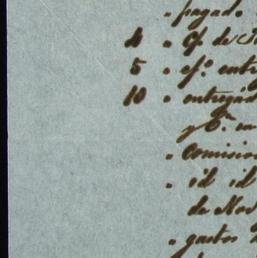 " pagado
4 " Cf. de
5 " ef.º entr
10 " entregad
y Cª. en
" Comision
" id id
de No
" gastos